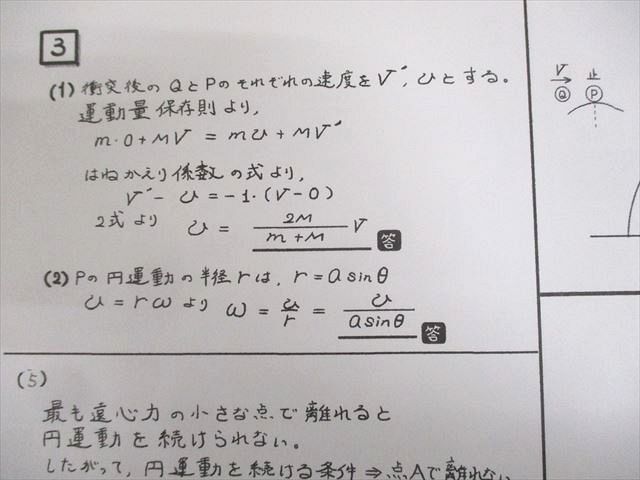 3
(1) 衝突後のQとPのそれぞれの速度をV', υとする。
運動量保存則より,
m・0+MV = mυ+MV'
はねかえり係数の式より,
V'- υ = -1・(V-0)
2式より υ = 2M/(m+M) V 答
(2) Pの円運動の半径rは, r = a sinθ
υ = rω より ω = υ/r = υ/(a sinθ) 答
(5)
最も遠心力の小さな点で離れると
円運動を続けられない。
したがって, 円運動を続ける条件 ⇒ 点Aで離れない
V 止
Q P